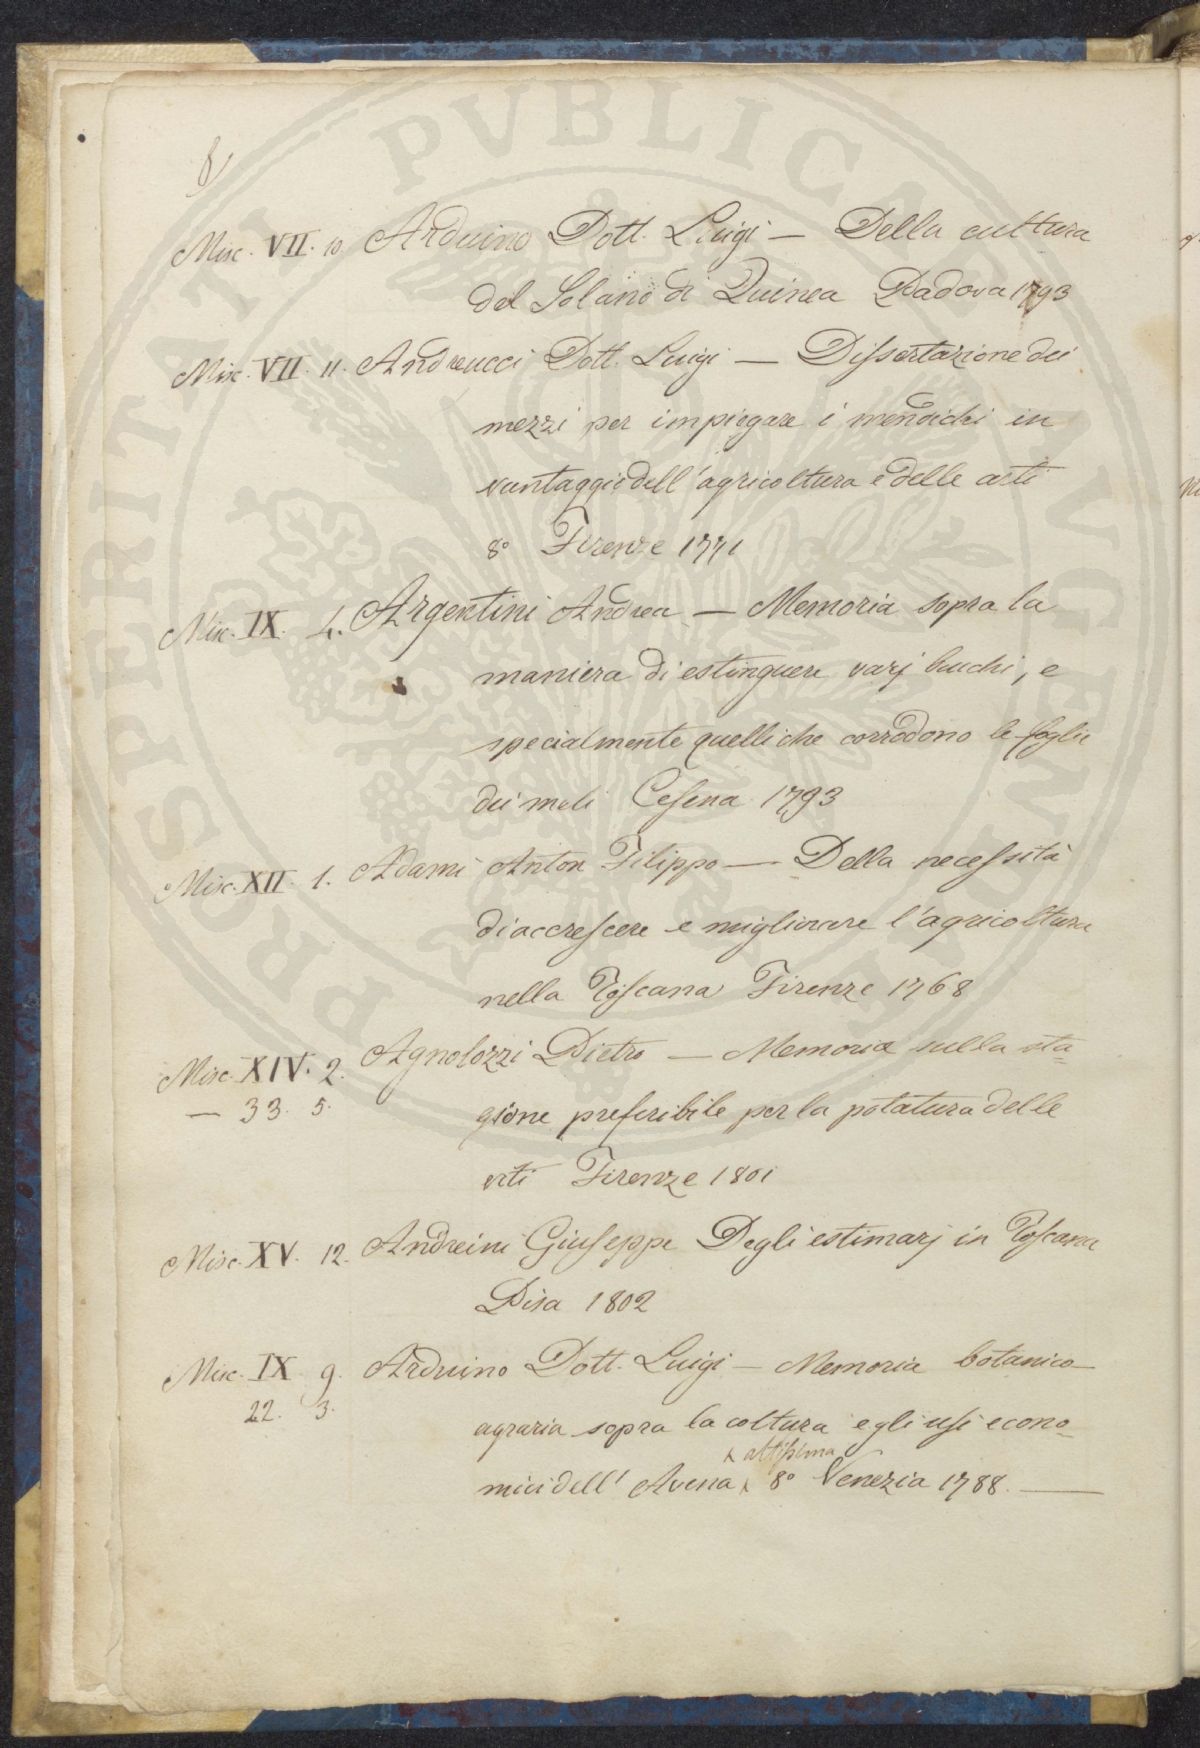 8
Misc. VII. 10. Arduino Dott. Luigi — Della cultura
del Solano di Guinea Padova 1793
Misc. VII. 11. Andreucci Dott. Luigi — Dissertazione dei
mezzi per impiegare i mendichi in
vantaggio dell'agricoltura e delle arti
8° Firenze 1771
Misc. IX. 4. Argentini Andrea — Memoria sopra la
maniera di estinguere varj bruchi, e
specialmente quelli che corrodono le foglie
dei meli Cesena 1793
Misc. XII. 1. Adami Anton Filippo — Della necessità
di accrescere e migliorare l'agricoltura
nella Toscana Firenze 1768
Misc. XIV. 2. Agnolozzi Pietro — Memoria sulla sta-
— 33. 5. gione preferibile per la potatura delle
viti Firenze 1801
Misc. XV. 12. Andreini Giuseppe Degli estimarj in Toscana
Pisa 1802
Misc. IX 9. Arduino Dott. Luigi — Memoria botanico-
22. 3. agraria sopra la coltura e gli usi econo-
altissima
mici dell'Avena 8° Venezia 1788. —
PROSPERITATI PVBLICAE AVGENDAE